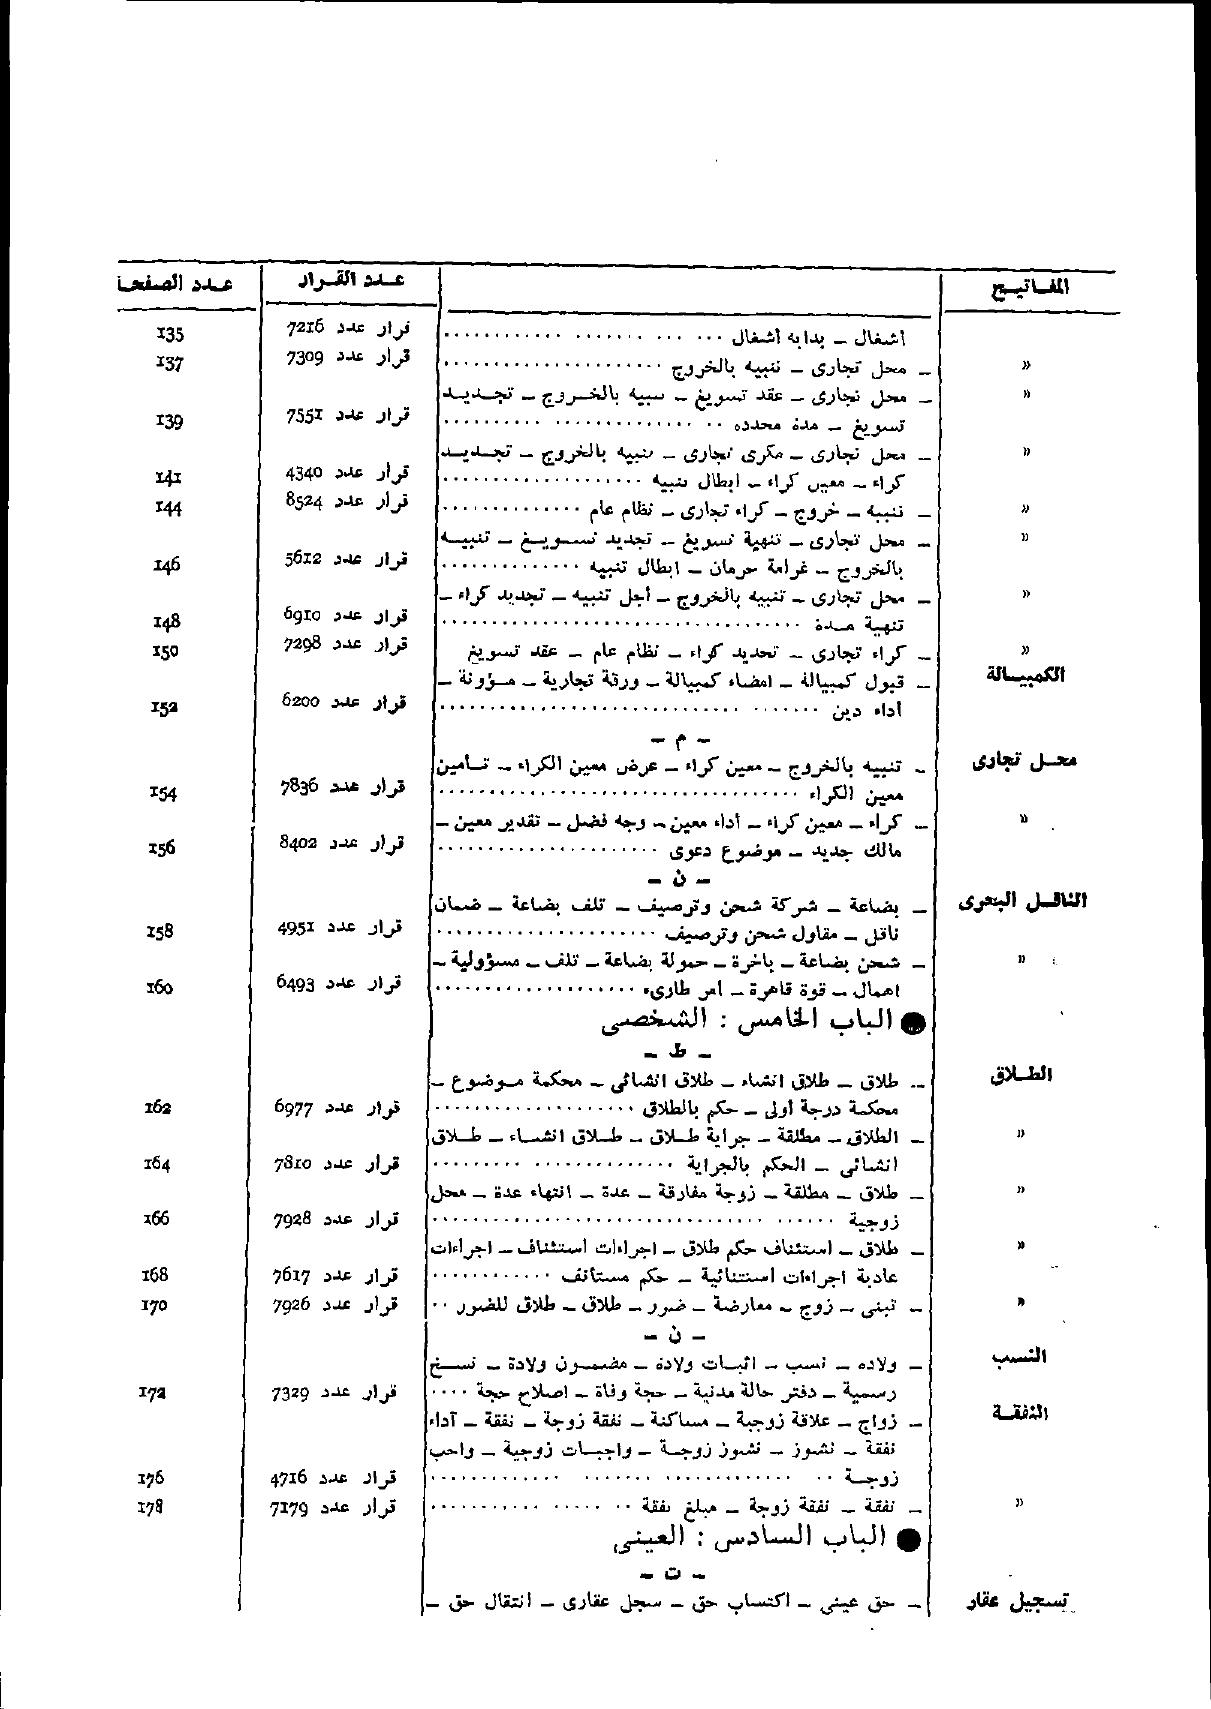 المفاتيح عدد القرار عدد الصفحة
أشغال – بداية أشغال قرار عدد 7216 135
» – محل تجارى – تنبيه بالخروج قرار عدد 7309 137
» – محل تجارى – عقد تسويغ – تنبيه بالخروج – تجديد
تسويغ – مدة محددة قرار عدد 7551 139
» – محل تجارى – مكرى تجارى – تنبيه بالخروج – تجديد
كراء – معين كراء – ابطال تنبيه قرار عدد 4340 141
» – تنبيه – خروج – كراء تجارى – نظام عام قرار عدد 8524 144
» – محل تجارى – تنهية تسويغ – تجديد تسويغ – تنبيه
بالخروج – غرامة حرمان – ابطال تنبيه قرار عدد 5612 146
» – محل تجارى – تنبيه بالخروج – أجل تنبيه – تجديد كراء –
تنهية مدة قرار عدد 6910 148
» – كراء تجارى – تحديد كراء – نظام عام – عقد تسويغ قرار عدد 7298 150
الكمبيالة – قبول كمبيالة – امضاء كمبيالة – ورقة تجارية – مؤونة –
أداء دين قرار عدد 6200 152
– م –
محل تجارى – تنبيه بالخروج – معين كراء – عرض معين الكراء – تأمين
معين الكراء قرار عدد 7836 154
» – كراء – معين كراء – أداء معين – وجه فضل – تقدير معين –
مالك جديد – موضوع دعوى قرار عدد 8402 156
– ن –
الناقل البحرى – بضاعة – شركة شحن وترصيف – تلف بضاعة – ضمان
ناقل – مقاول شحن وترصيف قرار عدد 4951 158
» – شحن بضاعة – باخرة – حمولة بضاعة – تلف – مسؤولية –
اهمال – قوة قاهرة – امر طارىء قرار عدد 6493 160
● الباب الخامس : الشخصى
– ط –
الطلاق – طلاق – طلاق انشاء – طلاق انشائى – محكمة موضوع –
محكمة درجة أولى – حكم بالطلاق قرار عدد 6977 162
» – الطلاق – مطلقة – جراية طلاق – طلاق انشاء – طلاق
انشائى – الحكم بالجراية قرار عدد 7810 164
» – طلاق – مطلقة – زوجة مفارقة – عدة – انتهاء عدة – محل
زوجية قرار عدد 7928 166
» – طلاق – استئناف حكم طلاق – اجراءات استئناف – اجراءات
عادية اجراءات استثنائية – حكم مستأنف قرار عدد 7617 168
» – تبنى – زوج – معارضة – ضرر – طلاق – طلاق للضرر قرار عدد 7926 170
– ن –
النسب – ولادة – نسب – اثبات ولادة – مضمون ولادة – نسخ
رسمية – دفتر حالة مدنية – حجة وفاة – اصلاح حجة قرار عدد 7329 172
النفقة – زواج – علاقة زوجية – مساكنة – نفقة زوجة – نفقة – أداء
نفقة – نشوز – نشوز زوجة – واجبات زوجية – واجب
زوجة قرار عدد 4716 176
» – نفقة – نفقة زوجة – مبلغ نفقة قرار عدد 7179 178
● الباب السادس : العينى
– ت –
تسجيل عقار – حق عينى – اكتساب حق – سجل عقارى – انتقال حق –